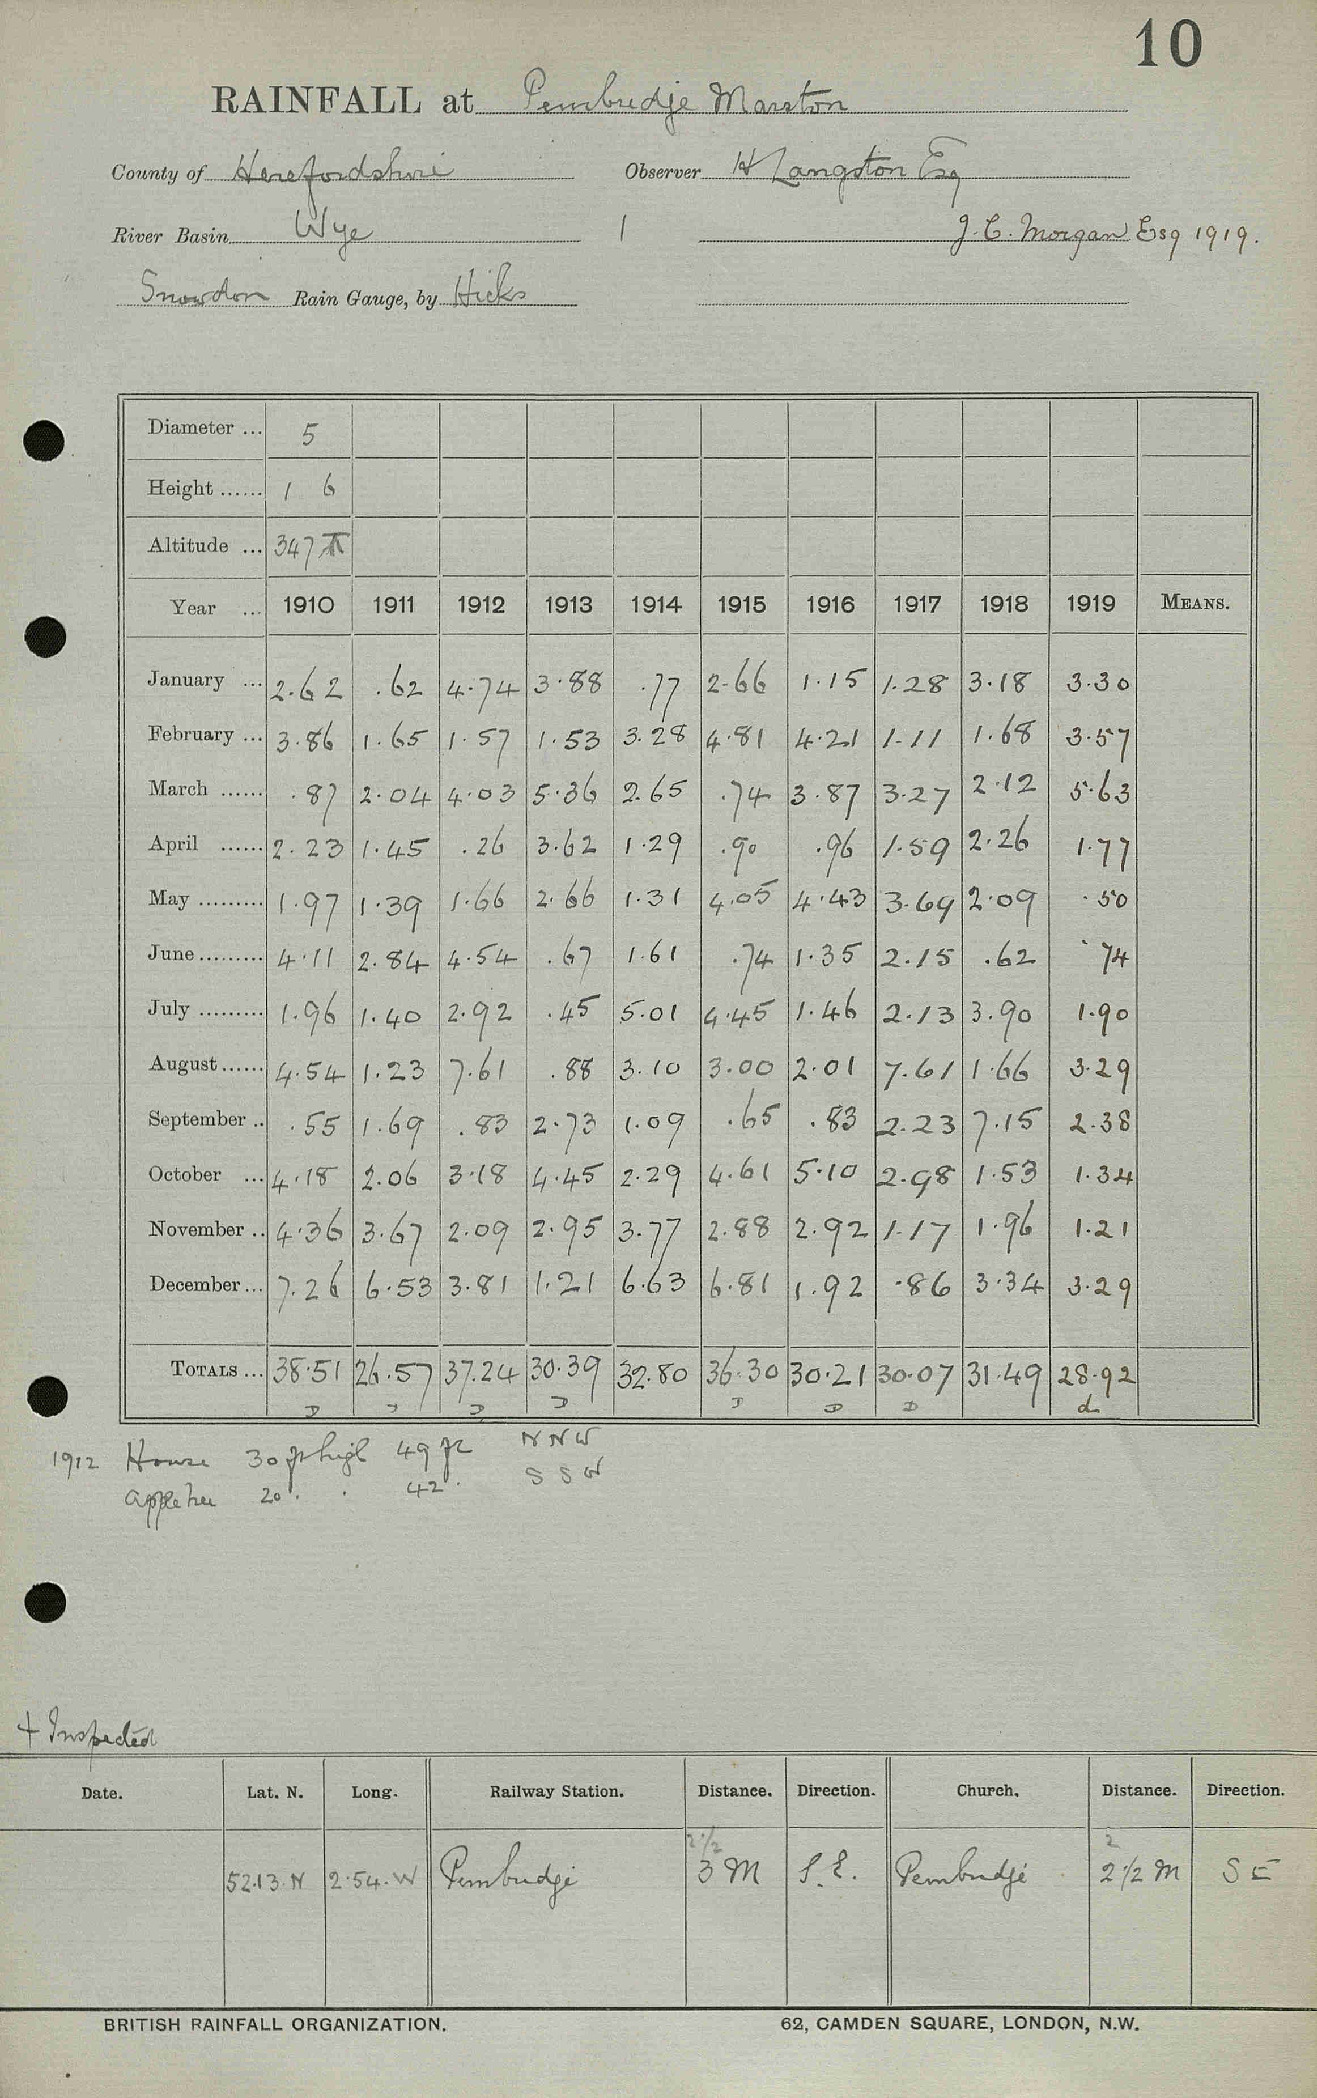 10
RAINFALL at Pembridge Marston
County of Herefordshire Observer H Langston Esq
River Basin Wye 1 J. C. Morgan Esq 1919.
Snowdon Rain Gauge, by Hicks
Diameter ... 5
Height ...... 1 6
Altitude ... 347
Year ... 1910 1911 1912 1913 1914 1915 1916 1917 1918 1919 MEANS.
January ... 2.62 .62 4.74 3.88 .77 2.66 1.15 1.28 3.18 3.30
February ... 3.86 1.65 1.57 1.53 3.28 4.81 4.21 1.11 1.68 3.57
March ...... .87 2.04 4.03 5.36 2.65 .74 3.87 3.27 2.12 5.63
April ...... 2.23 1.45 .26 3.62 1.29 .90 .96 1.59 2.26 1.77
May ......... 1.97 1.39 1.66 2.66 1.31 4.05 4.43 3.69 2.09 .50
June ......... 4.11 2.84 4.54 .67 1.61 .74 1.35 2.15 .62 .74
July ......... 1.96 1.40 2.92 .45 5.01 4.45 1.46 2.13 3.90 1.90
August ...... 4.54 1.23 7.61 .88 3.10 3.00 2.01 7.61 1.66 3.29
September .. .55 1.69 .83 2.73 1.09 .65 .83 2.23 7.15 2.38
October ... 4.18 2.06 3.18 4.45 2.29 4.61 5.10 2.98 1.53 1.34
November .. 4.36 3.67 2.09 2.95 3.77 2.88 2.92 1.17 1.96 1.21
December ... 7.26 6.53 3.81 1.21 6.63 6.81 1.92 .86 3.34 3.29
TOTALS ... 38.51 26.57 37.24 30.39 32.80 36.30 30.21 30.07 31.49 28.92
D D D D D D D d
1912 House 30 ft high 49 ft N N W
Apple tree 20 . . 42 . S S W
+ Inspected
Date. Lat. N. Long. Railway Station. Distance. Direction. Church. Distance. Direction.
2 1/2 2
52.13.N 2.54.W Pembridge 3 M S.E. Pembridge 2 1/2 M S E
BRITISH RAINFALL ORGANIZATION. 62, CAMDEN SQUARE, LONDON, N.W.